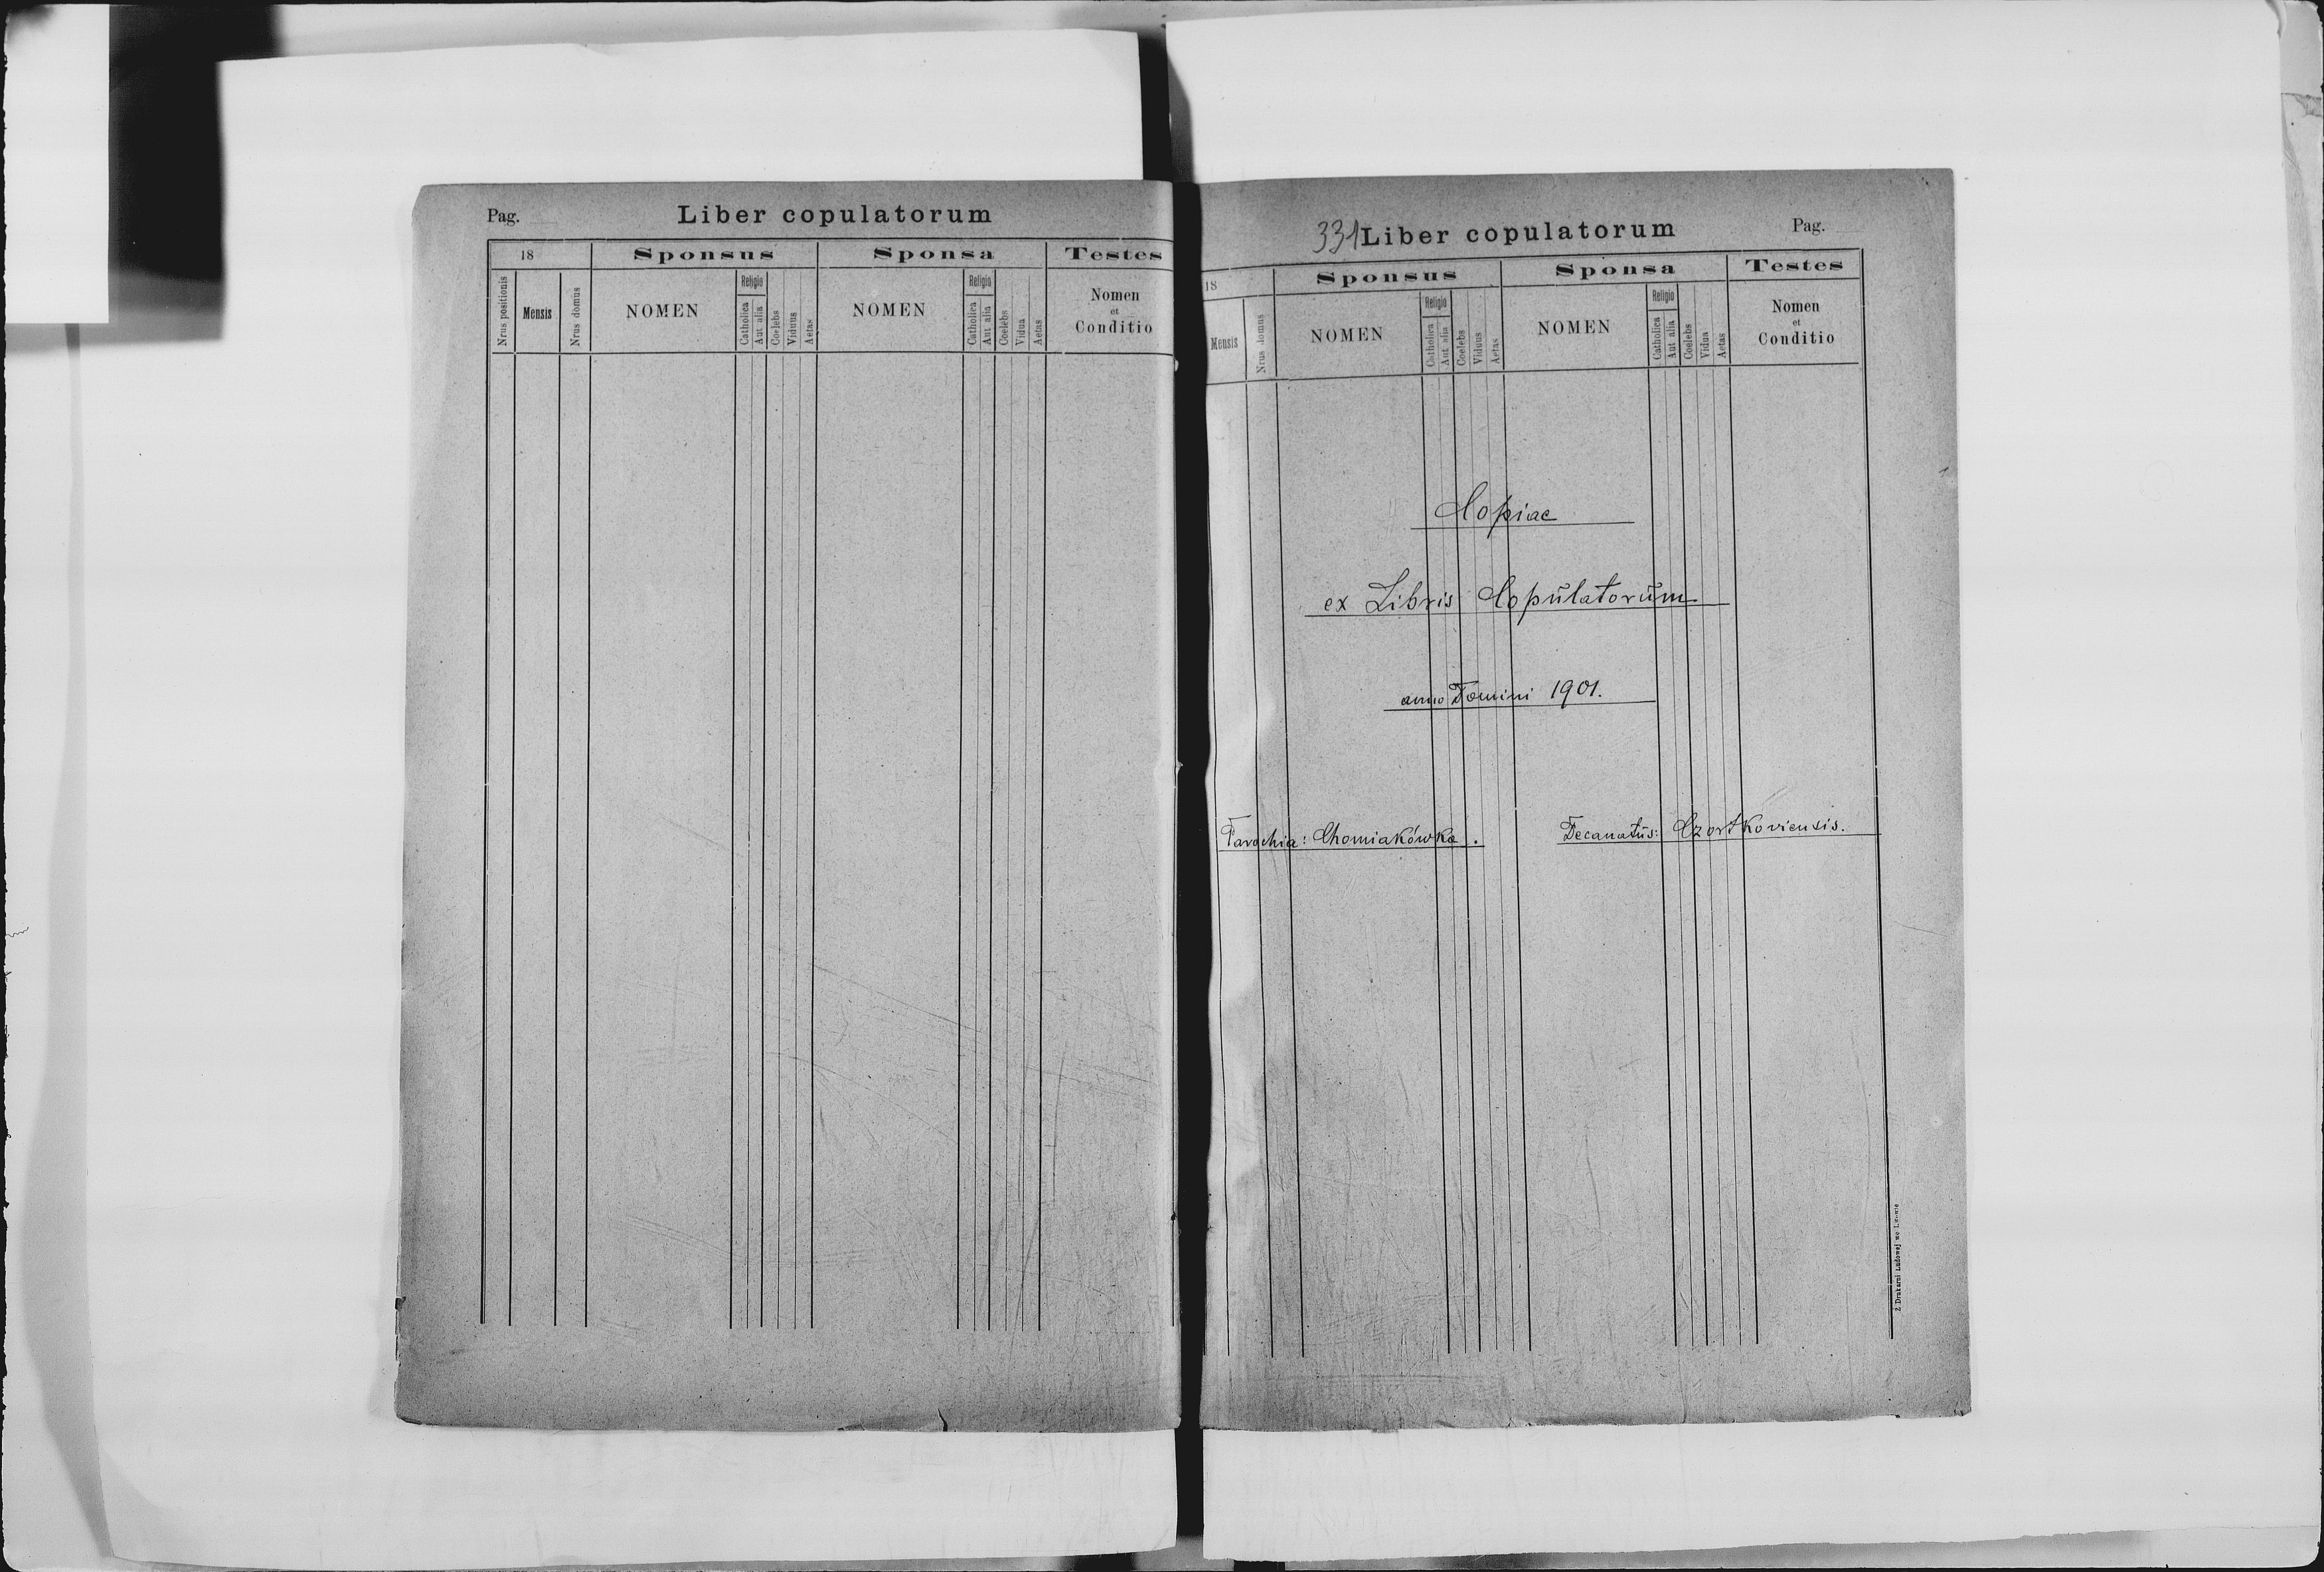 Pag.
Liber copulatorum
18
Sponsus
Sponsa
Testes
Nrus positionis
Mensis
Nrus domus
NOMEN
Religio
Catholica
Aut alia
Coelebs
Viduus
Aetas
NOMEN
Religio
Catholica
Aut alia
Coelebs
Vidua
Aetas
Nomen
et
Conditio
331
Liber copulatorum
Pag.
18
Sponsus
Sponsa
Testes
Mensis
Nrus domus
NOMEN
Religio
Catholica
Aut alia
Coelebs
Viduus
Aetas
NOMEN
Religio
Catholica
Aut alia
Coelebs
Vidua
Aetas
Nomen
et
Conditio
Copiae
ex Libris Copŭlatorŭm
anno Domini 1901.
Parochia: Chomiakówka.
Decanatŭs: Czortkoviensis.
Z Drukarni Ludowej we Lwowie